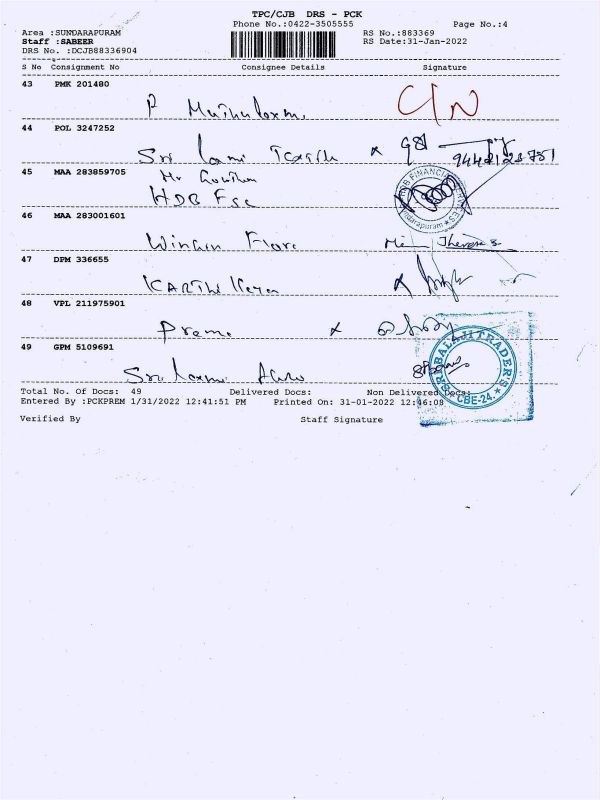 TPC/CJB DRS - PCK
Phone No.:0422-3505555 Page No.:4
Area :SUNDARAPURAM RS No.:883369
Staff :SABEER RS Date:31-Jan-2022
DRS No. :DCJB88336904
S No Consignment No Consignee Details Signature
43 PMK 201480
P Muthulaxmi C/N
44 POL 3247252
Sri Laxmi
45 MAA 283859705
Mr Gowtham
HDB Fsc
HDB FINANCIAL
46 MAA 283001601
47 DPM 336655
KARThi Keyan
48 VPL 211975901
Prema
49 GPM 5109691
Sri Laxmi
SRI BALAJI TRADERS
CBE-24.
Total No. Of Docs: 49 Delivered Docs: Non Delivered Docs:
Entered By :PCKPREM 1/31/2022 12:41:51 PM Printed On: 31-01-2022 12:46:08
Verified By Staff Signature